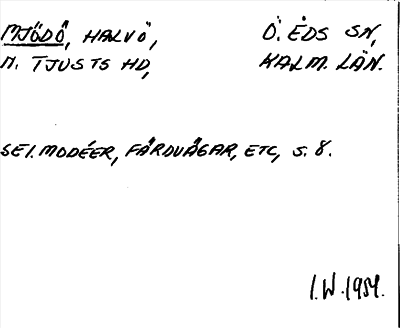 MJÖDÖ, HALVÖ, Ö. EDS SN,
N. TJUSTS HD, KALM. LÄN.
SE I. MODÉER, FÄRDVÄGAR, ETC, S. 8.
I.W. 1954.